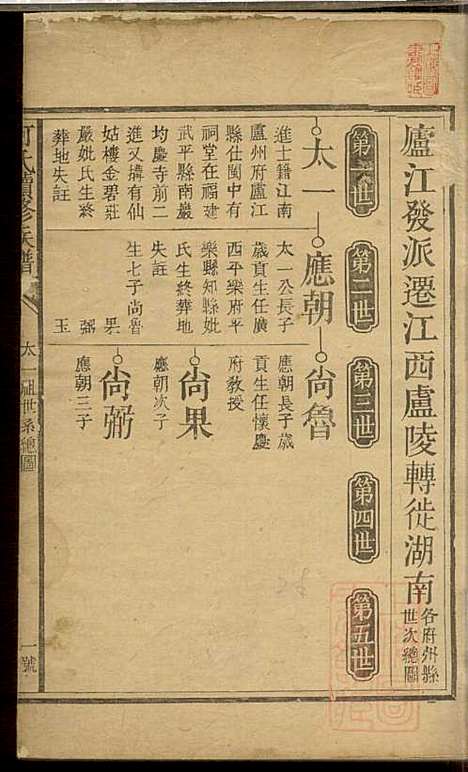 廬江發派遷江西盧陵轉徙湖南各府州縣世次總圖
第一世
第二世
第三世
第四世
第五世
太一
進士籍江南
廬州府廬江
縣仕閩中有
祠堂在福建
武平縣南巖
均慶寺前二
進又搆有仙
姑樓金碧莊
嚴妣氏生終
葬地失註
應朝
太一公長子
歲貢生任廣
西平樂府平
樂縣知縣妣
氏生終葬地
失註
生七子尙魯
果
弼
玉
尙魯
應朝長子歲
貢生任懷慶
府教授
尙果
應朝次子
尙弼
應朝三子
何氏續修族譜
太一祖世系總圖
一號